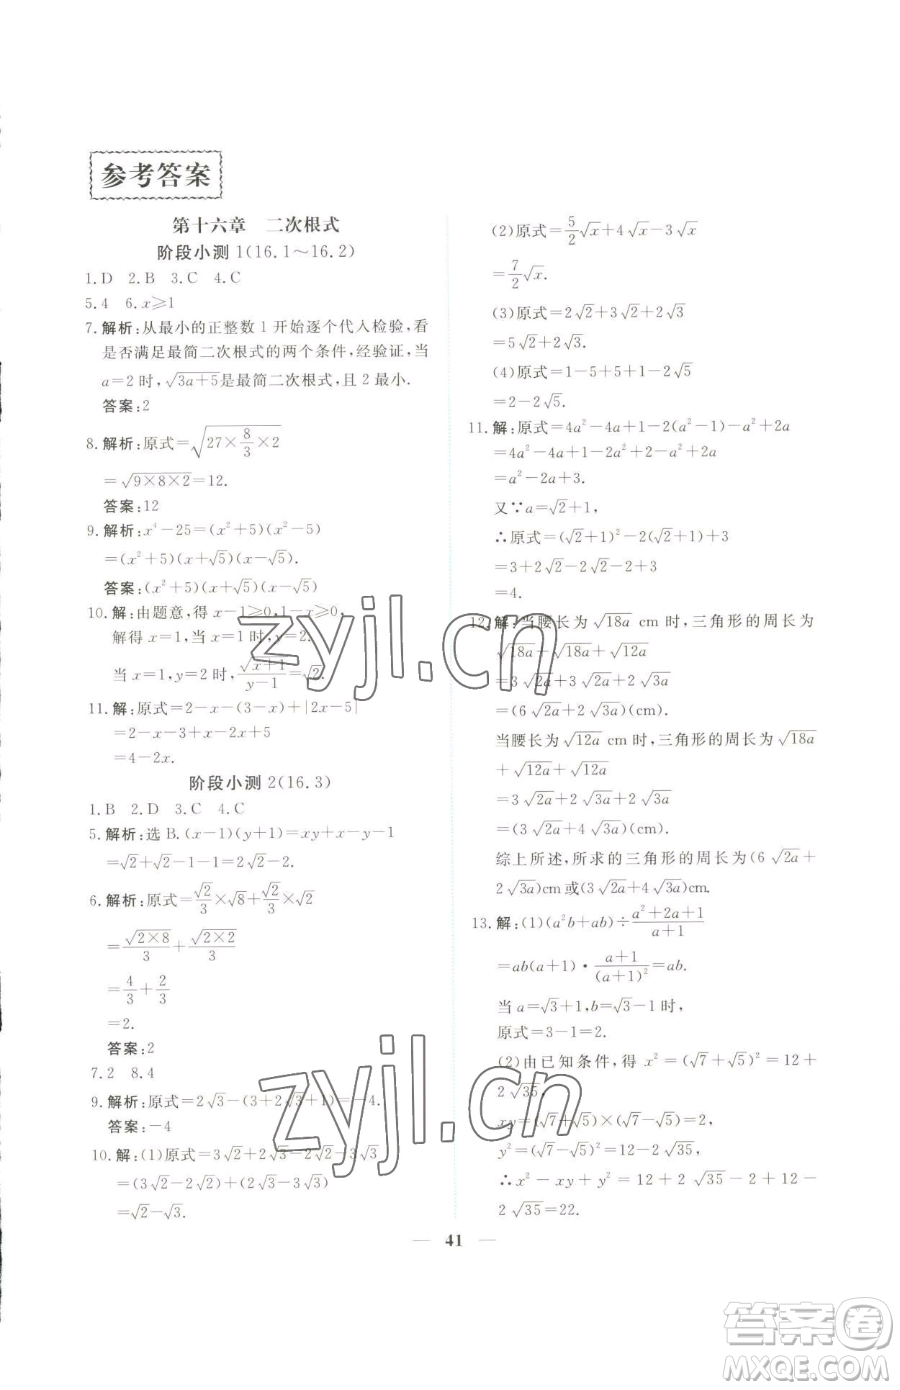 参考答案
第十六章　二次根式
阶段小测 1(16.1～16.2)
1.D　2.B　3.C　4.C
5.4　6.x≥1
7.解析:从最小的正整数 1 开始逐个代入检验,看
是否满足最简二次根式的两个条件,经验证,当
a=2 时,√(3a+5)是最简二次根式,且 2 最小.
答案:2
8.解析:原式=√(27×8/3×2)
=√(9×8×2)=12.
答案:12
9.解析:x⁴-25=(x²+5)(x²-5)
=(x²+5)(x+√5)(x-√5).
答案:(x²+5)(x+√5)(x-√5)
10.解:由题意,得 x-1≥0,1-x≥0,
解得 x=1,当 x=1 时,y=2.
当 x=1,y=2 时,√(x+1)/(y-1)=√2.
11.解:原式=2-x-(3-x)+|2x-5|
=2-x-3+x-2x+5
=4-2x.
阶段小测 2(16.3)
1.B　2.D　3.C　4.C
5.解析:选 B.(x-1)(y+1)=xy+x-y-1
=√2+√2-1-1=2√2-2.
6.解析:原式=√2/3×√8+√2/3×√2
=√(2×8)/3+√(2×2)/3
=4/3+2/3
=2.
答案:2
7.2　8.4
9.解析:原式=2√3-(3+2√3+1)=-4.
答案:-4
10.解:(1)原式=3√2+2√3-2√2-3√3
=(3√2-2√2)+(2√3-3√3)
=√2-√3.
(2)原式=5/2√x+4√x-3√x
=7/2√x.
(3)原式=2√2+3√2+2√3
=5√2+2√3.
(4)原式=1-5+5+1-2√5
=2-2√5.
11.解:原式=4a²-4a+1-2(a²-1)-a²+2a
=4a²-4a+1-2a²+2-a²+2a
=a²-2a+3.
又∵a=√2+1,
∴原式=(√2+1)²-2(√2+1)+3
=3+2√2-2√2-2+3
=4.
12.解:当腰长为 √18a cm 时,三角形的周长为
√18a+√18a+√12a
=3√2a+3√2a+2√3a
=(6√2a+2√3a)(cm).
当腰长为√12a cm 时,三角形的周长为 √18a
+√12a+√12a
=3√2a+2√3a+2√3a
=(3√2a+4√3a)(cm).
综上所述,所求的三角形的周长为(6√2a+
2√3a)cm 或(3√2a+4√3a)cm.
13.解:(1)(a²b+ab)÷(a²+2a+1)/(a+1)
=ab(a+1)·(a+1)/(a+1)²=ab.
当 a=√3+1,b=√3-1 时,
原式=3-1=2.
(2)由已知条件,得 x²=(√7+√5)²=12+
2√35,
xy=(√7+√5)×(√7-√5)=2,
y²=(√7-√5)²=12-2√35.
∴x²-xy+y²=12+2√35-2+12-
2√35=22.
— 41 —
zyjl.cn
zyjl.cn
答案圈
MXQE.COM